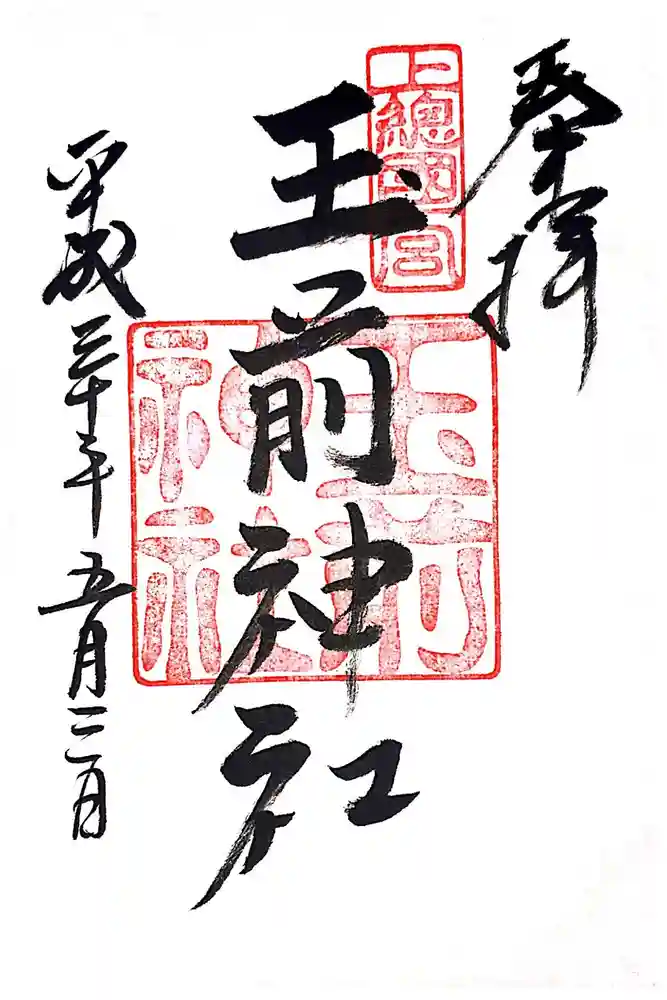 奉拝
上總國一宮
玉前神社
玉前
神社
平成三十年五月三日